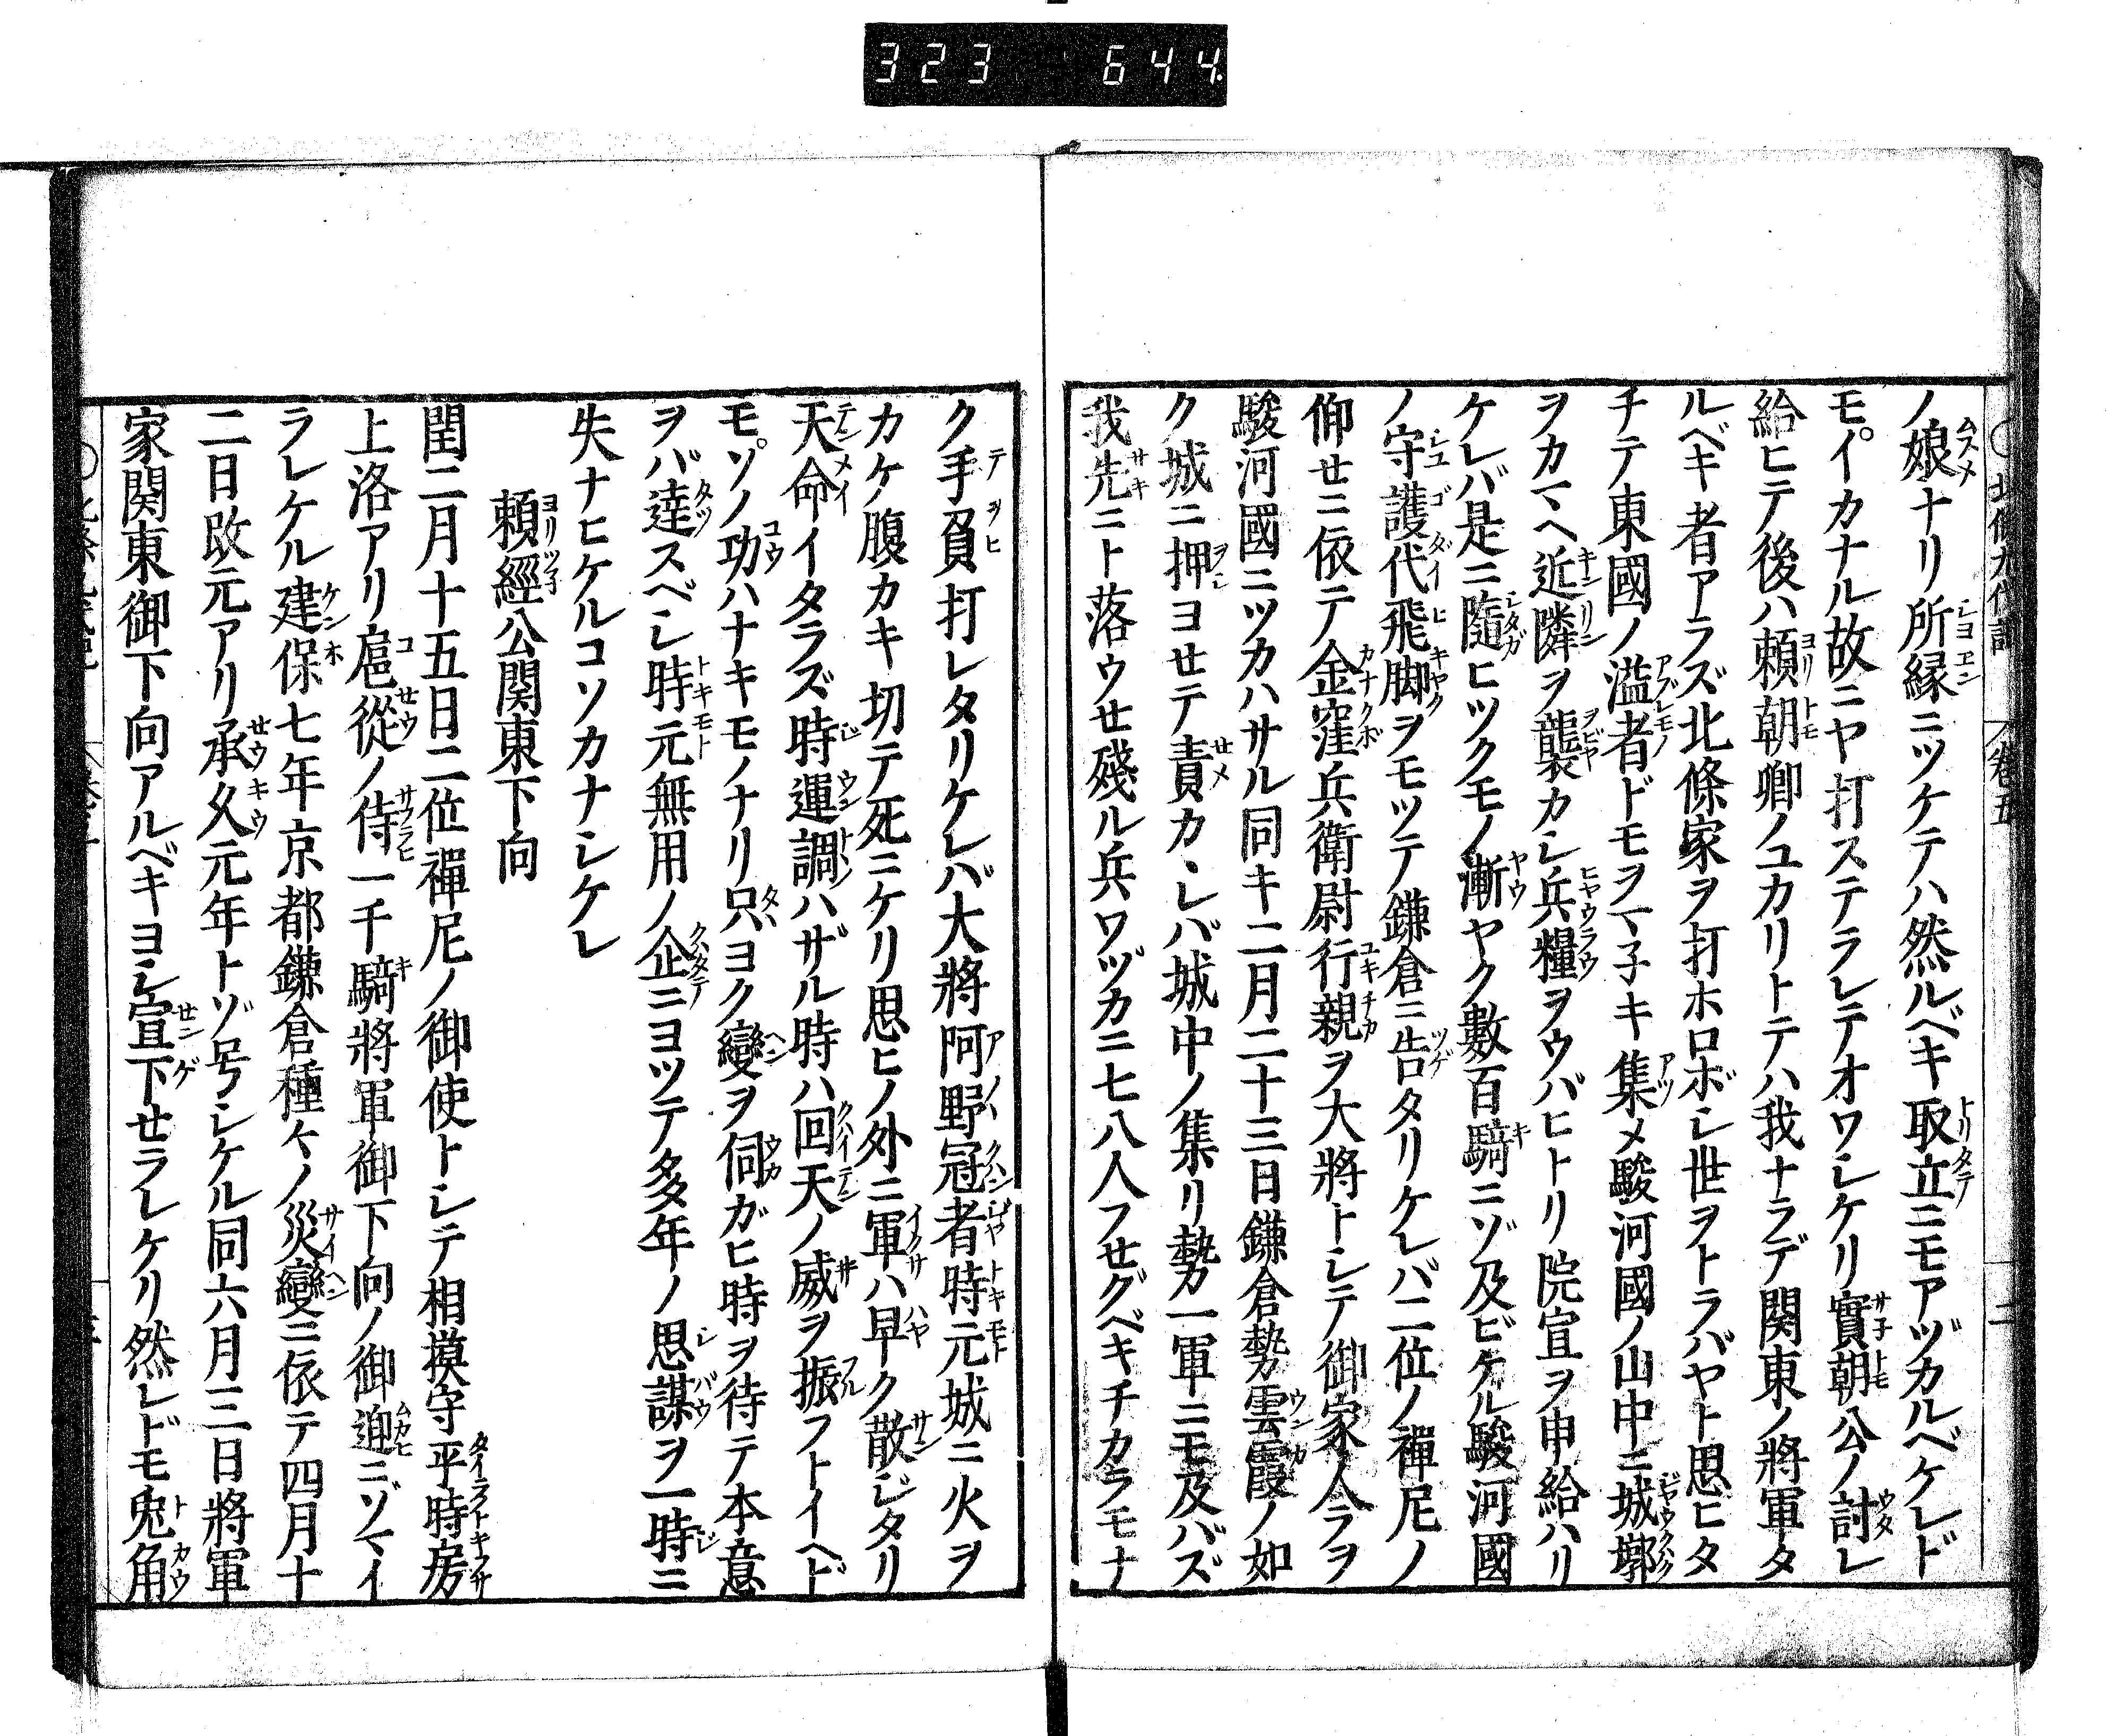 323 644
ノ娘ナリ所縁ニツケテハ然ルベキ取立ニモアヅカルベケレド
モイカナル故ニヤ打ステラレテオワシケリ實朝公ノ討レ
給ヒテ後ハ頼朝卿ノユカリトテハ我ナラデ関東ノ將軍タ
ルベキ者アラズ北條家ヲ打ホロボシ世ヲトラバヤト思ヒタ
チテ東國ノ溢者ドモヲマ子キ集メ駿河國ノ山中ニ城墎
ヲカマヘ近隣ヲ襲カシ兵糧ヲウバヒトリ院宣ヲ申給ハリ
ケレバ是ニ隨ヒツクモノ漸ヤク數百騎ニゾ及ビケル駿河國
ノ守護代飛脚ヲモツテ鎌倉ニ告タリケレバ二位ノ禪尼ノ
仰せニ依テ金窪兵衛尉行親ヲ大將トシテ御家人ラヲ
駿河國ニツカハサル同キ二月二十三日鎌倉勢雲霞ノ如
ク城ニ押ヨせテ責カヽレバ城中ノ集リ勢一軍ニモ及バズ
我先ニト落ウせ殘ル兵ワヅカニ七八人フせグベキチカラモナ
ク手負打レタリケレバ大將阿野冠者時元城ニ火ヲ
カケ腹カキ切テ死ニケリ思ヒノ外ニ軍ハ早ク散ジタリ
天命イタラズ時運調ハザル時ハ回天ノ威ヲ振フトイヘド
モソノ功ハナキモノナリ只ヨク變ヲ伺ガヒ時ヲ待テ本意
ヲバ達スベシ時元無用ノ企ニヨツテ多年ノ思謀ヲ一時ニ
失ナヒケルコソカナシケレ
頼經公関東下向
閏二月十五日二位禪尼ノ御使トシテ相摸守平時房
上洛アリ扈從ノ侍一千騎將軍御下向ノ御迎ニゾマイ
ラレケル建保七年京都鎌倉種々ノ災變ニ依テ四月十
二日改元アリ承久元年トゾ号シケル同六月三日將軍
家関東御下向アルベキヨシ宣下せラレケリ然レドモ兎角